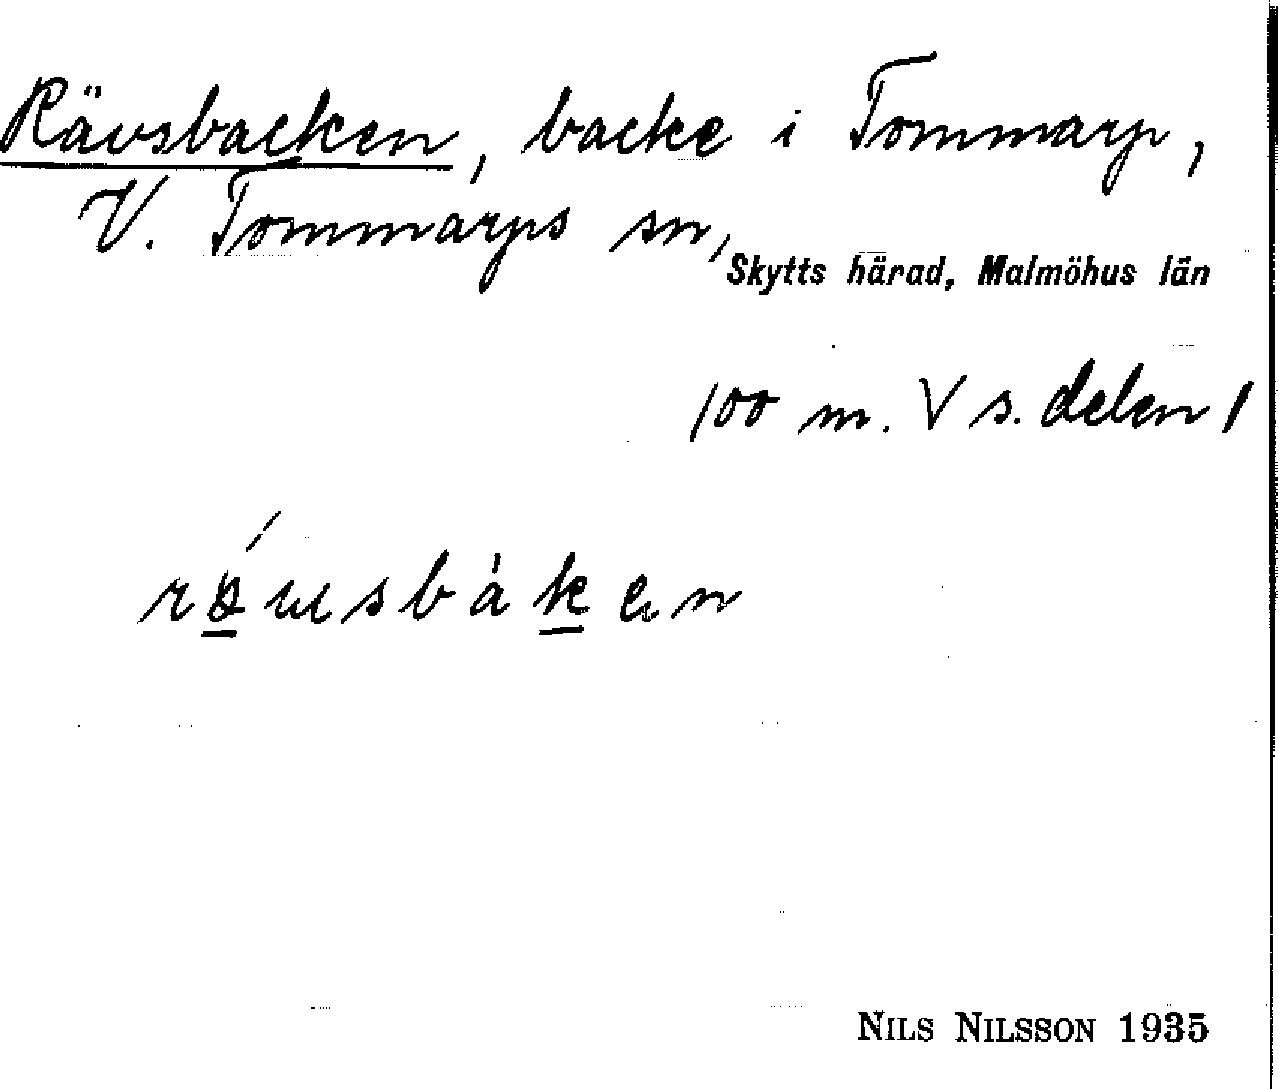 Rävsbacken, backe i Tommarp,
V. Tommarps sn,
Skytts härad, Malmöhus län
100 m. V s. delen
NILS NILSSON 1935